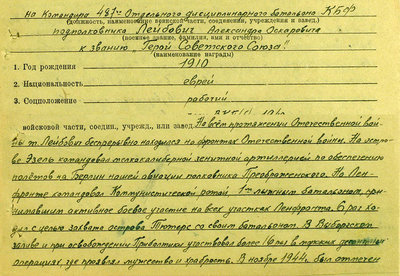 на Командира 487го Отдельного дисциплинарного Батальона КБФ
(должность, наименование воинской части, соединения, учреждения и завед.)
подполковника Лейбович Александра Оскаровича
(военное звание, фамилия, имя и отчество)
к званию „Герой Советского Союза"
(наименование награды)
1. Год рождения 1910
2. Национальность еврей
3. Соцположение рабочий
войсковой части, соедин., учрежд., или завед. На всём протяжении Отечественной вой-
ны т. Лейбович беспрерывно находился на фронтах Отечественной войны. На остро-
ве Эзель командовал малокалиберной зенитной артиллерией по обеспечению
полётов на Берлин нашей авиации полковника Преображенского. На Лен-
фронте командовал Коммунистической ротой, 1м лыжным батальоном, при-
нимавшим активное боевое участие на всех участках Ленфронта. 6 раз хо-
дил с целью захвата острова Тютерс со своим батальоном. В Выборгском
заливе и при освобождении Прибалтики участвовал более 16 раз в десантных
операциях где проявлял мужество и храбрость. В ноябре 1944г. был отмечен